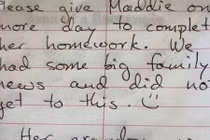 Please give Maddie on
more day to complet
her homework. We
had some big family
news and did no
get to this. ☺
Her